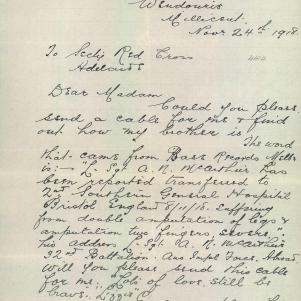 Wendouris
Millicent.
Novr 24th 1918
To Secty Red Cross
Adelaide
Dear Madam
Could you please
send a cable for me & find
out how my brother is The word
that came from Base Records Melb
is:- "L. Sgt. A. R. McArthur has
been reported transferred to
2nd Southern General Hospital
Bristol England 8/11/18. suffering
from double amputation of legs &
amputation two fingers, severe."
his address Sgt. A. R. McArthur
32nd Battalion. Aus Impl Forces. Abroad
Will you please send this cable
for me. "Lots of love. still be
brave.